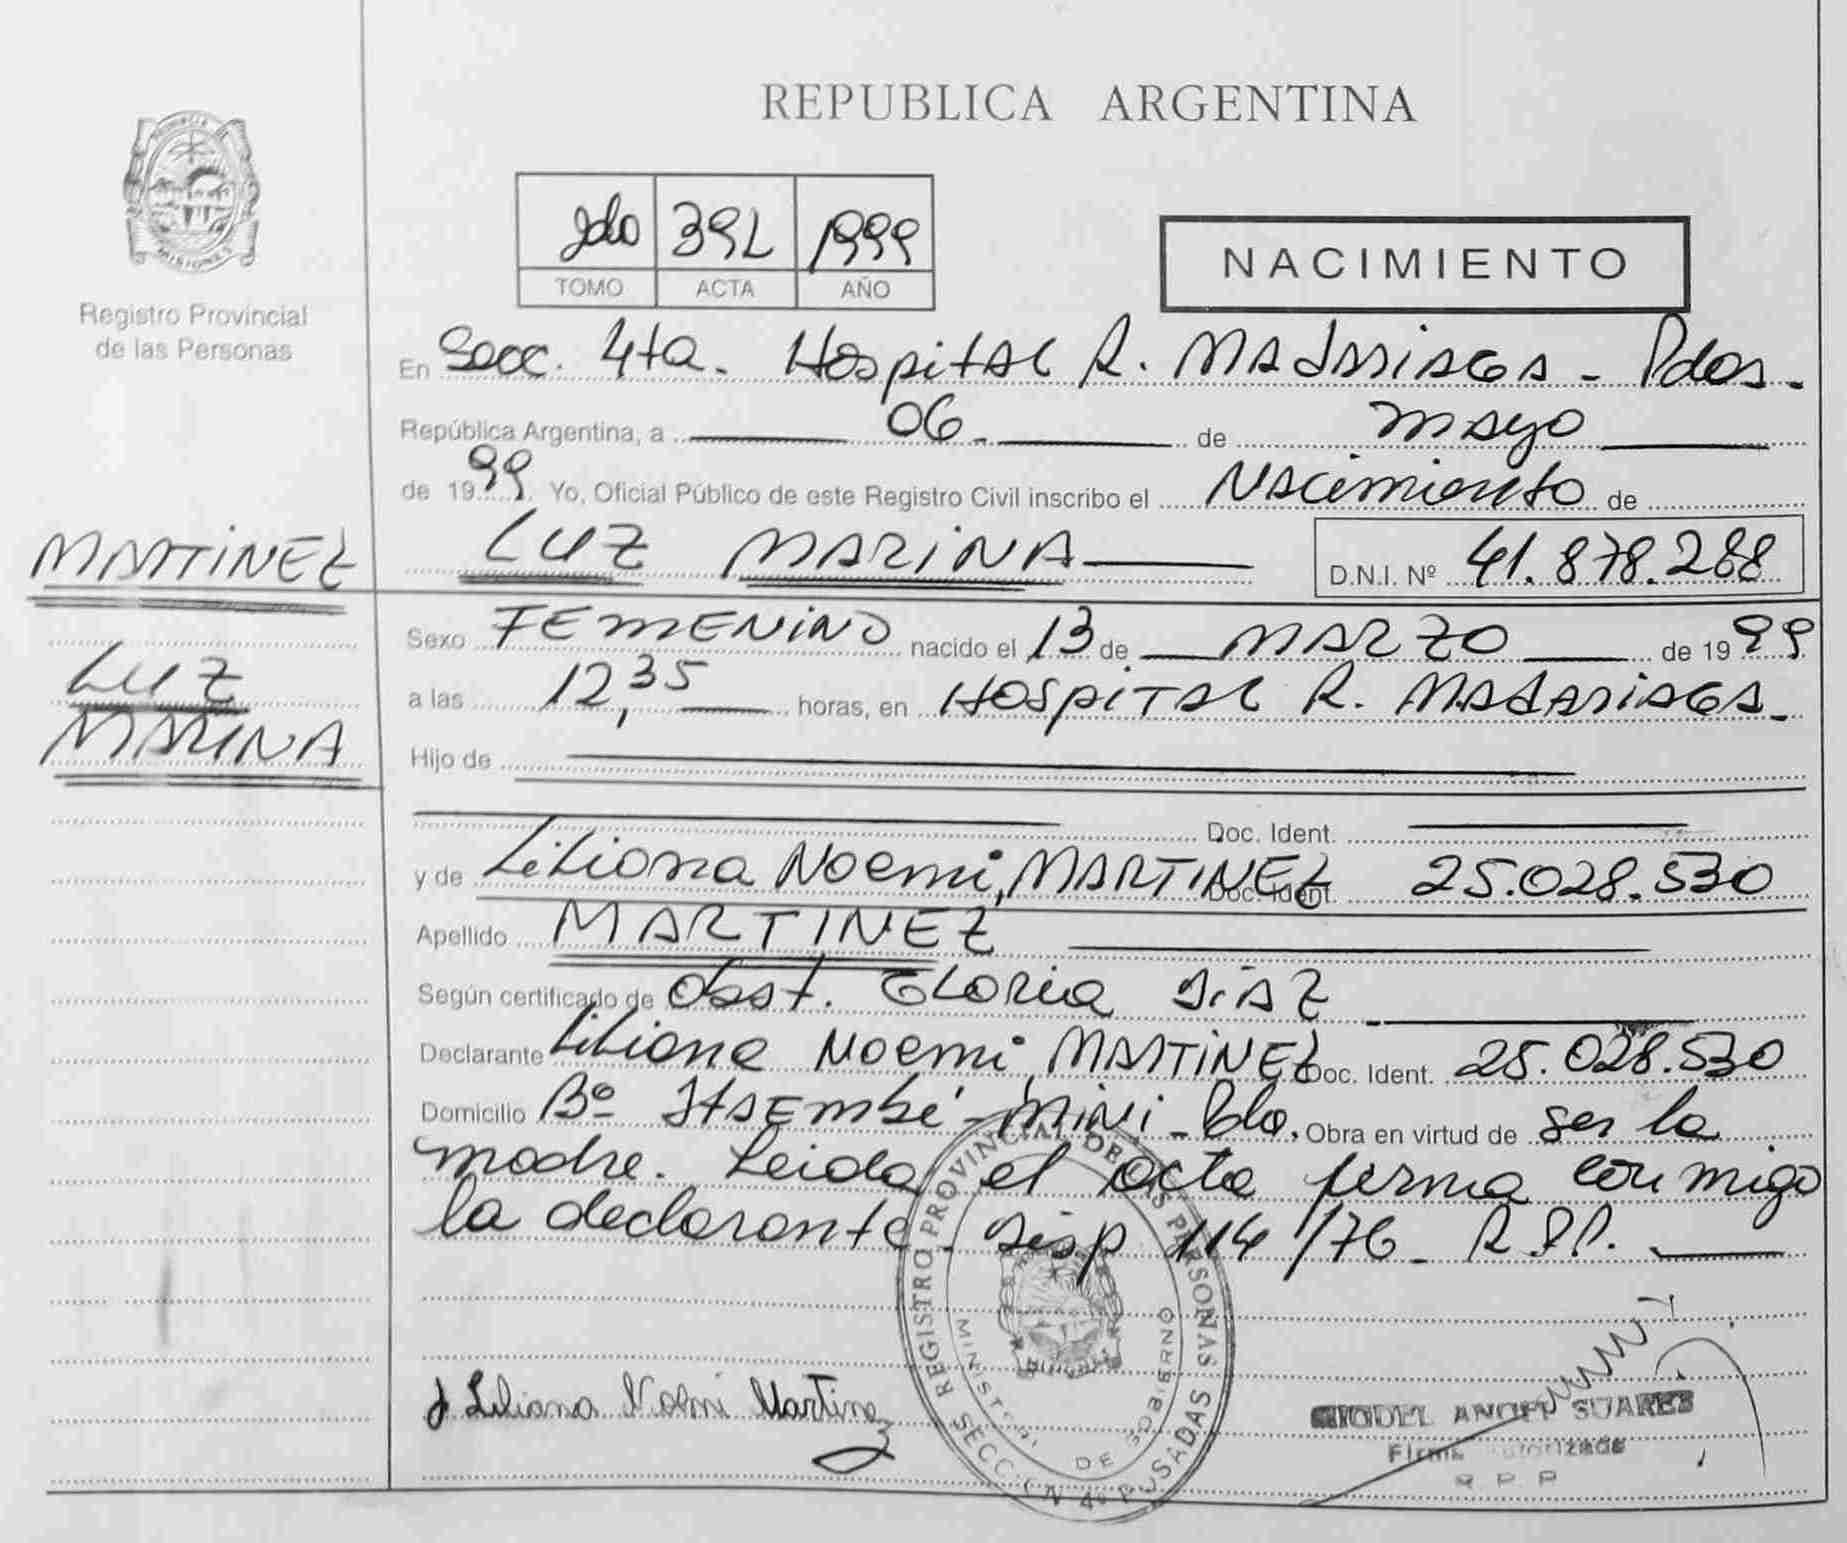 REPUBLICA ARGENTINA
PROVINCIA DE MISIONES
Registro Provincial
de las Personas
2do 392 1999
TOMO ACTA AÑO
NACIMIENTO
En Secc. 4ta. Hospital R. MADARIAGA - Pdas.
República Argentina, a 06 de mayo
de 1999. Yo, Oficial Público de este Registro Civil inscribo el Nacimiento de
MARTINEZ
LUZ MARINA
D.N.I. Nº 41.878.288
LUZ
MARINA
Sexo FEMENINO nacido el 13 de MARZO de 1999
a las 12,35 horas, en Hospital R. MADARIAGA
Hijo de
Doc. Ident.
y de Liliana Noemi, MARTINEZ Doc. Ident. 25.028.530
Apellido MARTINEZ
Según certificado de Obst. Gloria DIAZ
Declarante Liliana Noemi, MARTINEZ Doc. Ident. 25.028.530
Domicilio Bº ITAEMBÉ-MINI - Pdas. Obra en virtud de ser la
madre. Leida el acta firma conmigo
la declarante. Disp 114/76 - R.P.P.
REGISTRO PROVINCIAL DE LAS PERSONAS
MINISTERIO DE GOBIERNO
SECCION 4º POSADAS
MISIONES
Liliana Noemi Martinez
MIGUEL ANGEL SUAREZ
Firma Autorizada
R P P